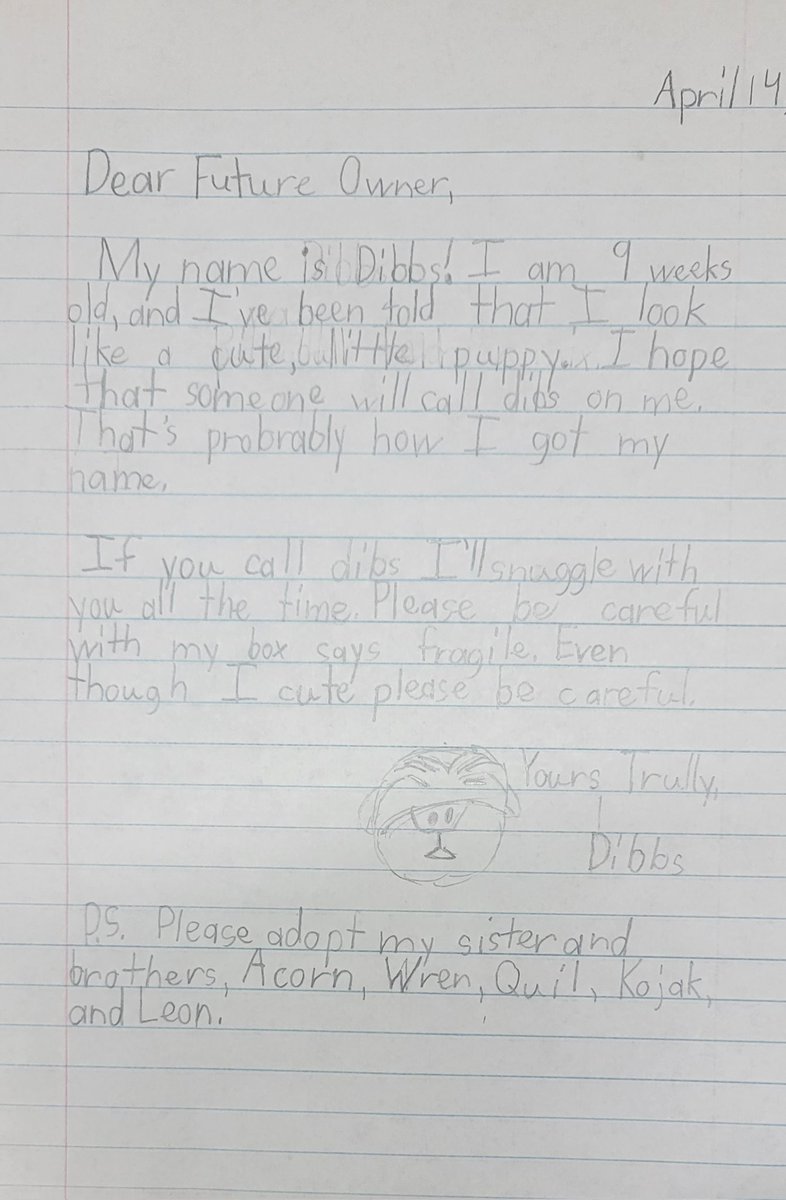 April 14
Dear Future Owner,
My name is Dibbs! I am 9 weeks
old, and I've been told that I look
like a cute, little puppy. I hope
that someone will call dibs on me.
That's probrably how I got my
name.
If you call dibs I'll snuggle with
you all the time. Please be careful
with my box says fragile. Even
though I cute please be careful.
Yours Trully,
Dibbs
P.S. Please adopt my sister and
brothers, Acorn, Wren, Quil, Kojak,
and Leon.